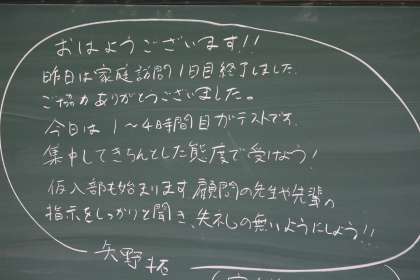 おはようございます!!
昨日は家庭訪問1日目終了しました.
ご協力ありがとうございました。
今日は 1〜4時間目がテストです.
集中してきちんとした態度で受けよう!
仮入部も始まります 顧問の先生や先輩の
指示をしっかりと聞き、失礼の無いようにしよう!!
矢野